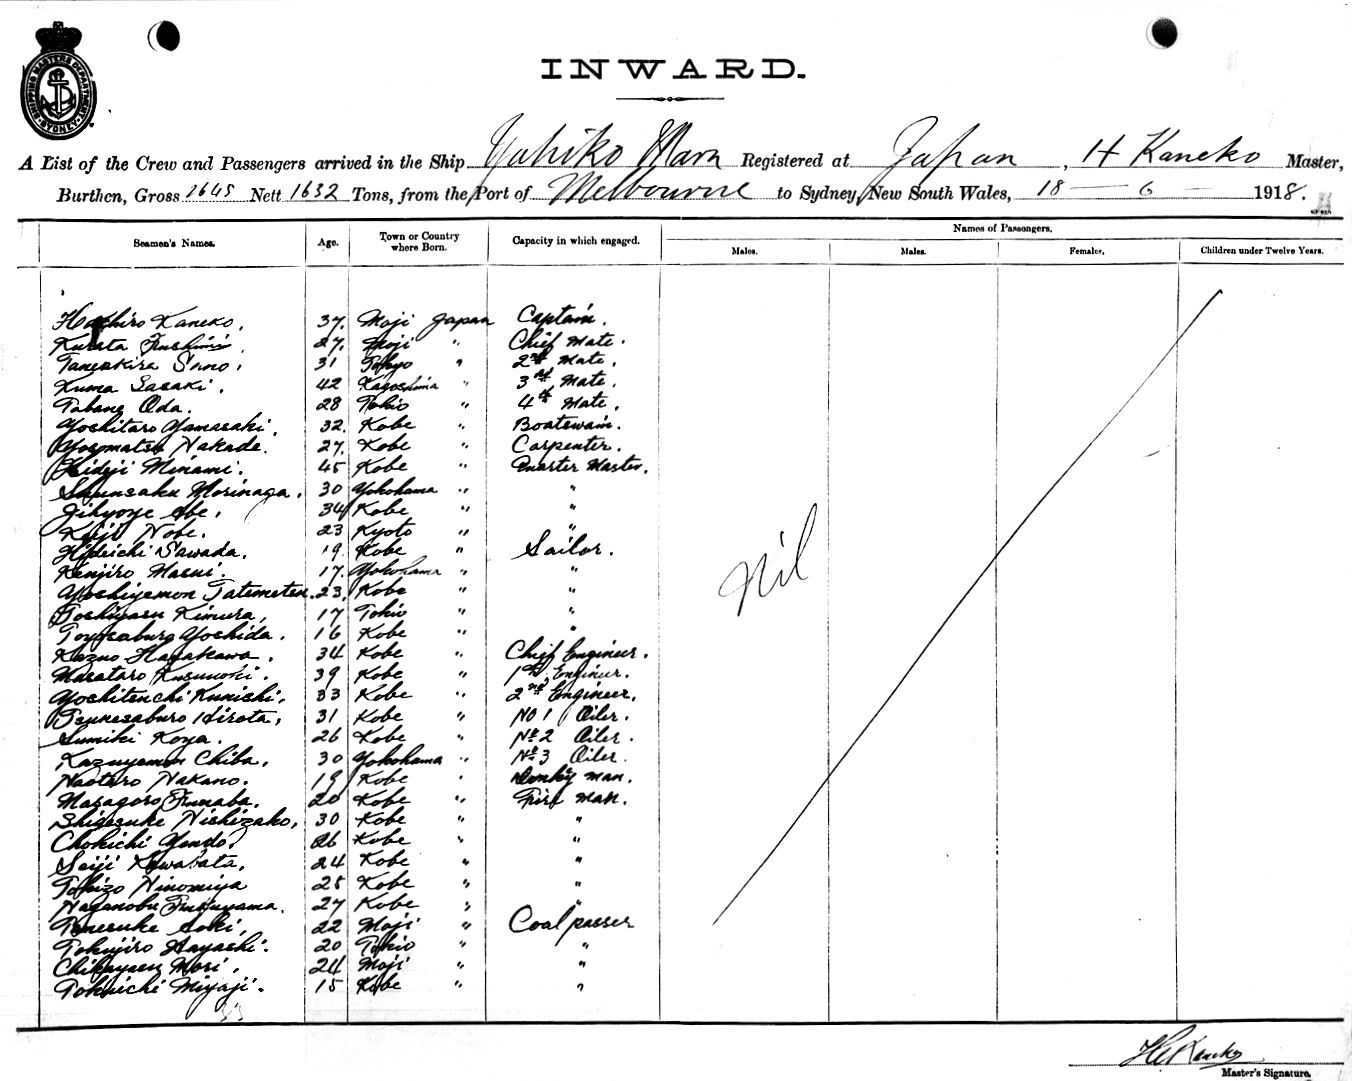 SHIPPING MASTERS DEPARTMENT SYDNEY
INWARD.
A List of the Crew and Passengers arrived in the Ship Yahiko Maru Registered at Japan, H Kaneko Master,
Burthen, Gross 2645 Nett 1632 Tons, from the Port of Melbourne to Sydney, New South Wales, 18 - 6 - 1918.
Seamen's Names. Age. Town or Country where Born. Capacity in which engaged. Names of Passengers.
Males. Males. Females. Children under Twelve Years.
Hachiro Kaneko. 37. Moji Japan Captain.
Kurata Fushimi. 27. Moji " Chief Mate.
Tameakira Sano. 31 Tokyo " 2nd Mate.
Kuma Sasaki. 42 Kagoshima " 3rd Mate.
Tabane Oda. 28 Tokio " 4th Mate.
Yoshitaro Yamasaki. 32. Kobe " Boatswain.
Yosomatsu Nakade. 27. Kobe " Carpenter.
Hideji Minami. 45 Kobe " Quarter Master.
Shunsaku Morinaga. 30 Yokohama " "
Jihyoye Abe. 34 Kobe " "
Keiji Nobe. 23 Kyoto " "
Hideichi Sawada. 19. Kobe " Sailor.
Kenjiro Masui. 17. Yokohama " "
Yoshiyemon Tatematsu. 23. Kobe " "
Toshiyasu Kimura, 17 Tokio " "
Toyosaburo Yoshida. 16 Kobe " "
Kazuo Hayakawa. 34 Kobe " Chief Engineer.
Masataro Kusunoki. 39 Kobe " 1st Engineer.
Yoshitsuchi Kunishi. 33 Kobe " 2nd Engineer.
Tsunesaburo Hirota, 31 Kobe " No 1 Oiler.
Sumiki Koya. 26 Kobe " No 2 Oiler.
Kazuyemon Chiba, 30 Yokohama " No 3 Oiler.
Naotaro Nakano. 19 Kobe " Donky man.
Masagoro Funaba. 20 Kobe " Fire Man.
Shigesuke Nishizako, 30 Kobe " "
Chokichi Yendo. 26 Kobe " "
Seiji Kawabata, 24 Kobe " "
Tokizo Ninomiya 25 Kobe " "
Naganobu Fukuyama. 27 Kobe " "
Tamesuke Aoki, 22 Moji " Coal passer
Tokujiro Hayashi. 20 Tokio " "
Chikayasu Mori, 24 Moji " "
Tokuichi Miyaji. 15 Kobe " "
33
Nil
H Kaneko
Master's Signature.